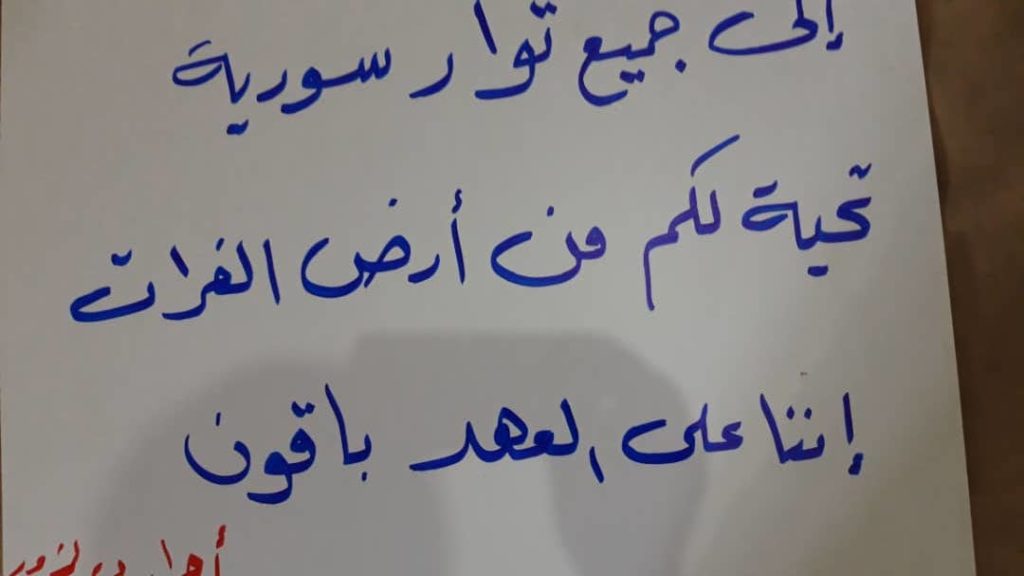 إلى جميع ثوار سورية
تحية لكم من أرض الفرات
إننا على العهد باقون
أحرار ديرالزور